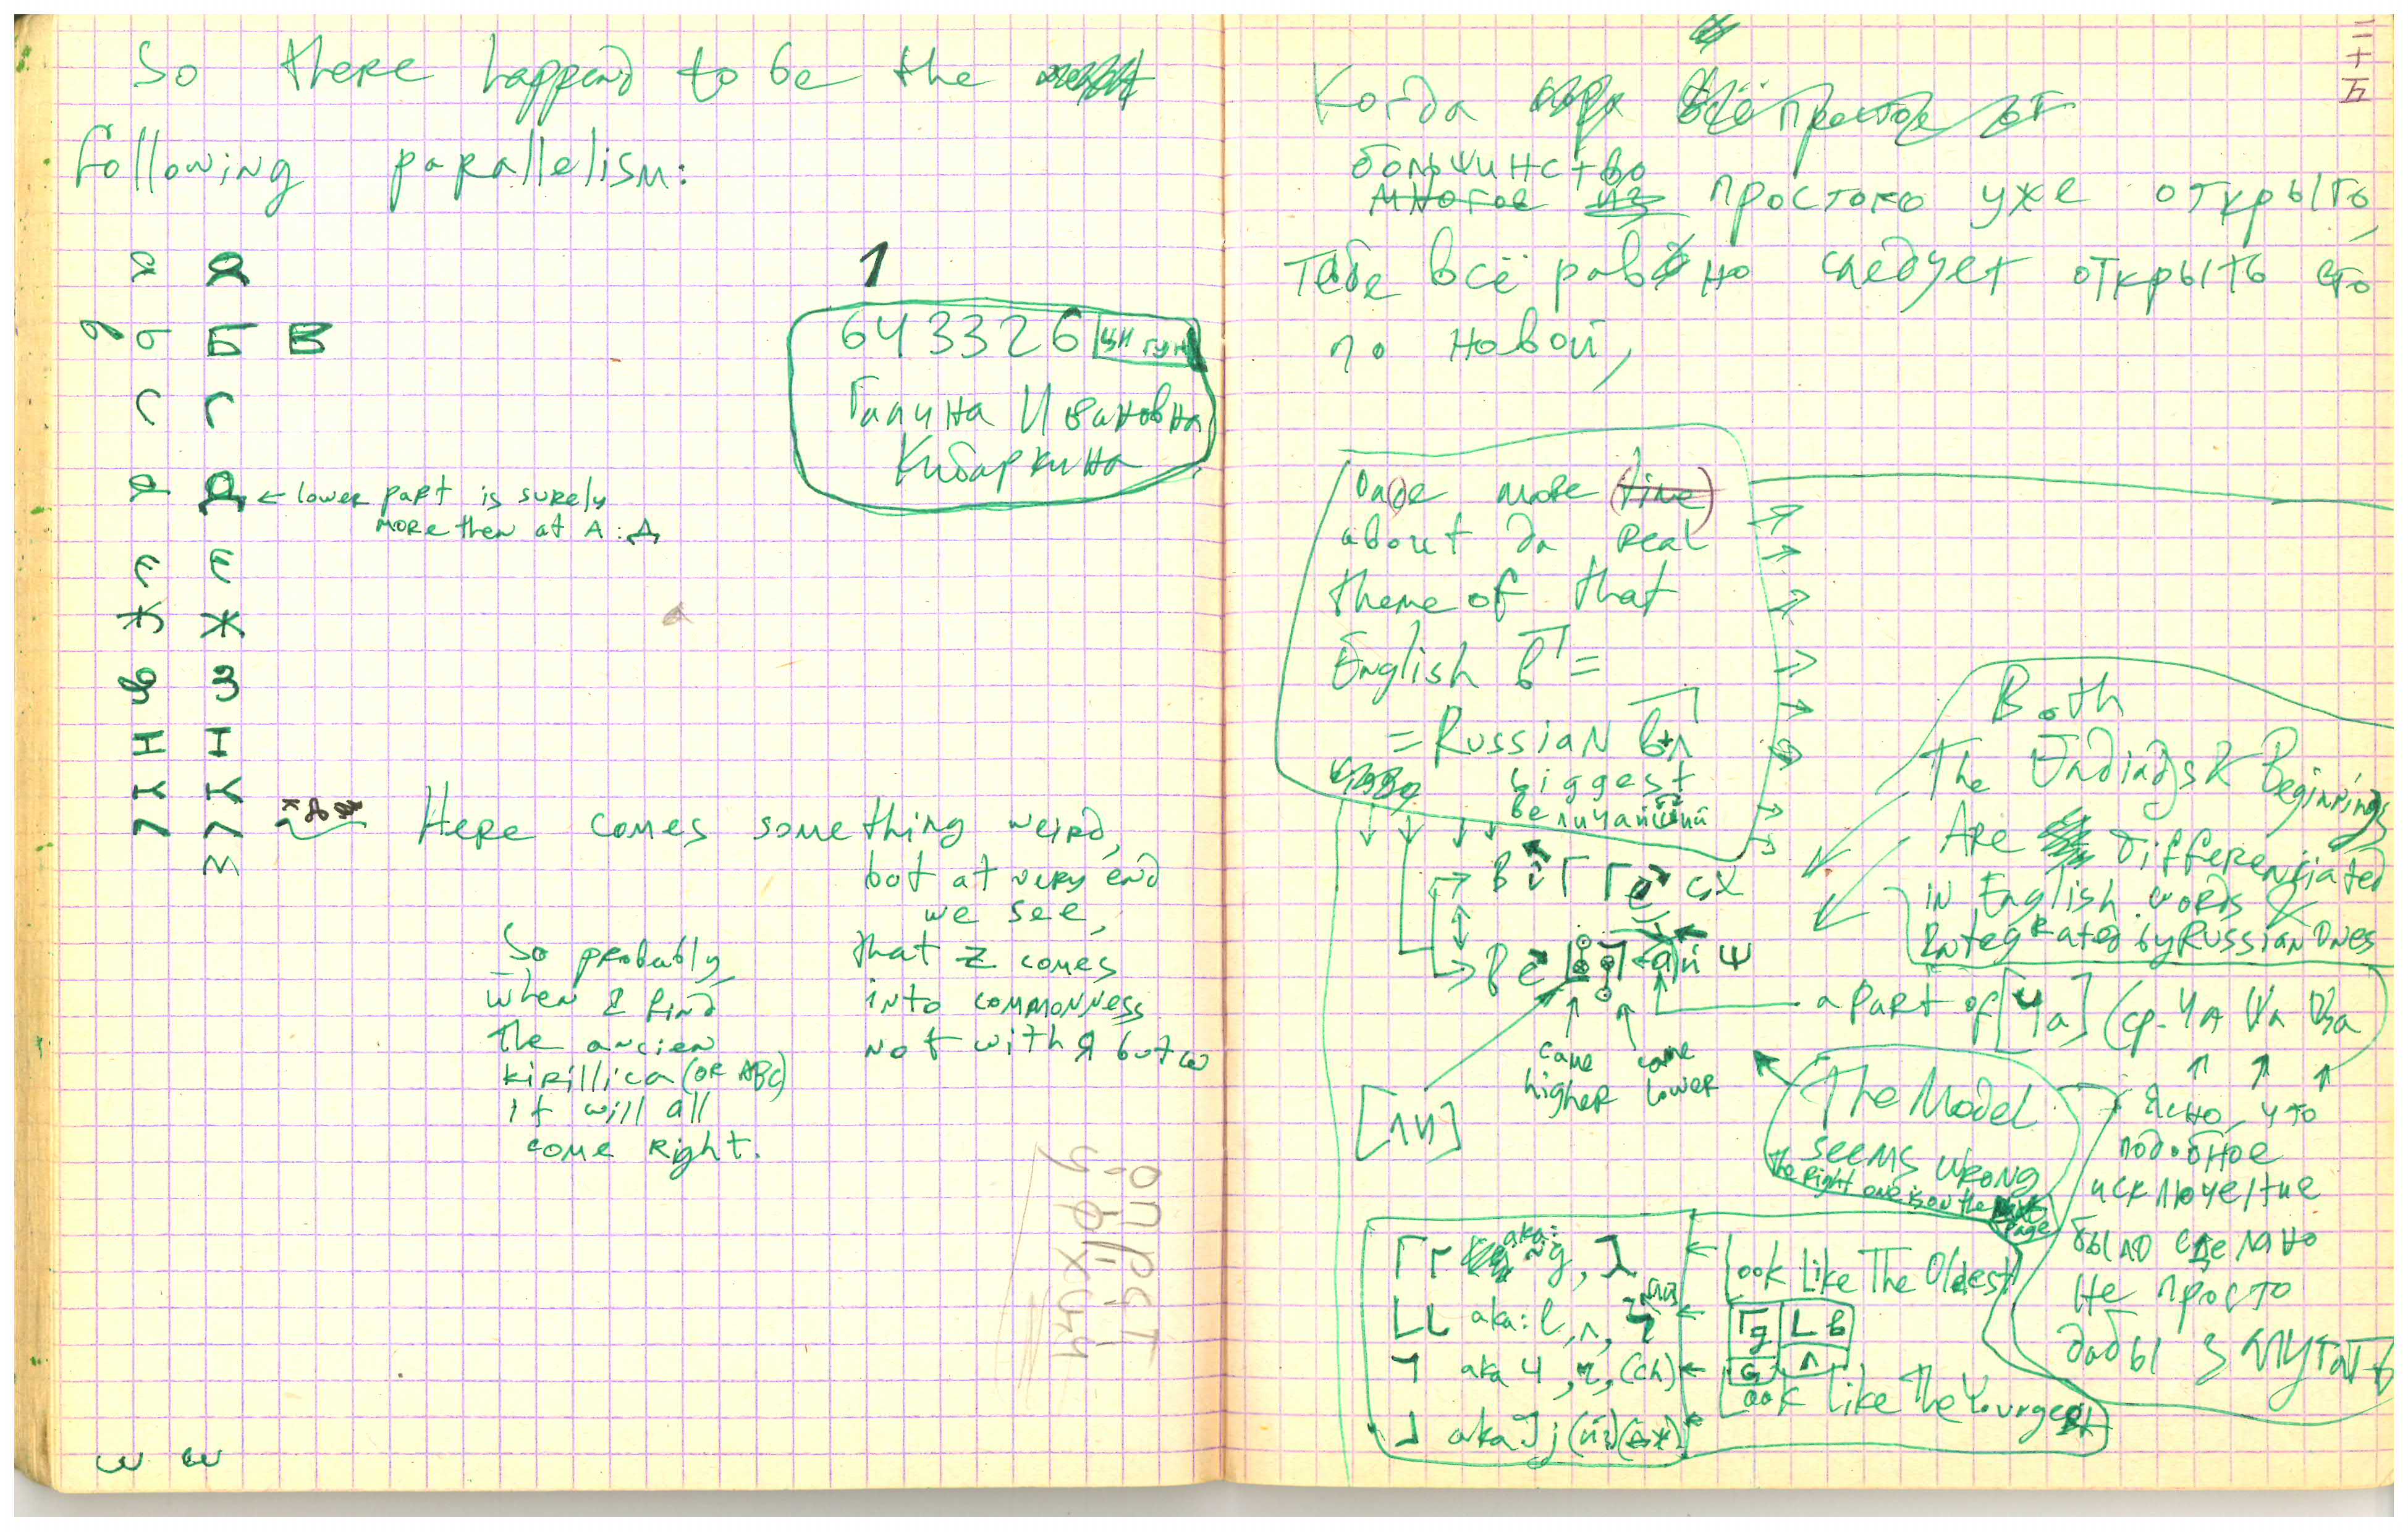 So there happend to be the
following parallelism:
а Д
б Б В
с Г
д Д ← lower part is surely
more then at A: Д
Е Е
Ж Ж
З
H I
Y Y
Л Л Here comes something weird,
M
but at very end
we see,
that z comes
into commonness
not with Я but ω
So probably
when I find
the ancien
kirillica (or ABC)
it will all
come right.
ω ω
1
643326 ЦИ ГУН
Галина Ивановна
Кибаркина
二十五
Когда всё простое
большинство
многое из простого уже открыто,
тебе всё равно следует открыть его
по новой,
Once more (time)
about da real
theme of that
English b =
= Russian
biggest
величайший
Both
The Endings & Beginnings
Are differentiated
in English words &
Integrated by Russian Ones
a part of [ча] (ср. ча
came higher
came lower
[ли]
The Model
seems wrong
the right one is on the page
Ясно, что
подобное
исключение
было сделано
не просто
дабы запутать
Гг aka: g,
LL aka: l, л,
aka ч, (ch)
aka J j (й)
← Look Like The Oldest
Гg L в
G Л
Look Like The Youngest